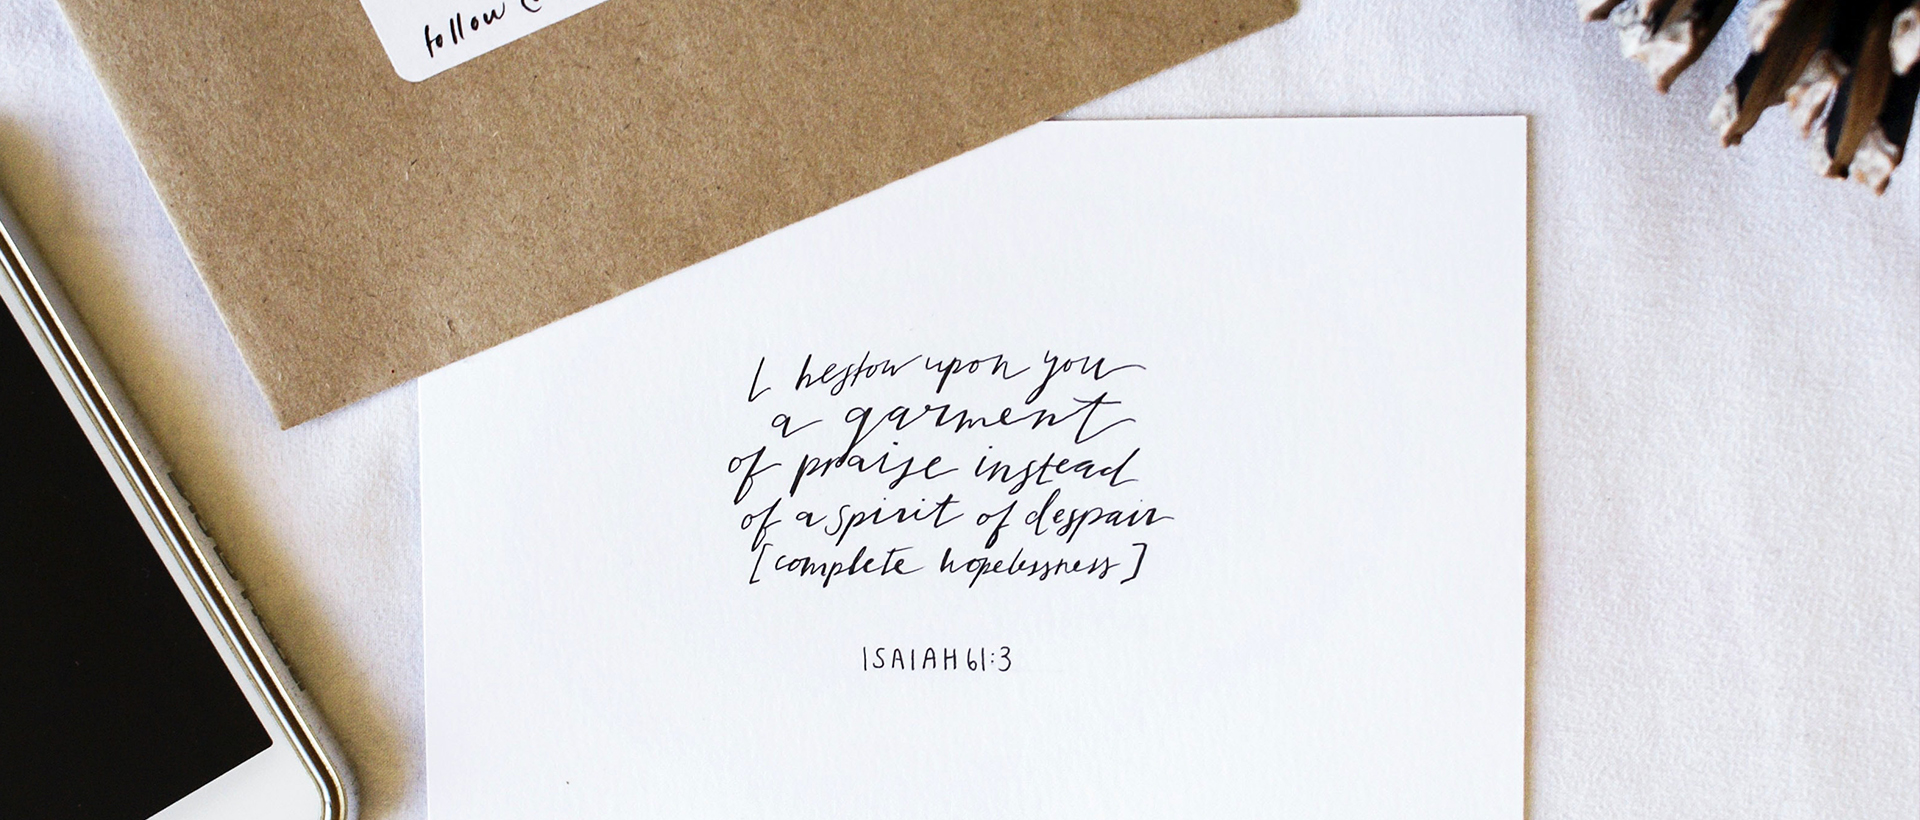 follow
I bestow upon you
a garment
of praise instead
of a spirit of despair
[complete hopelessness]
ISAIAH 61:3